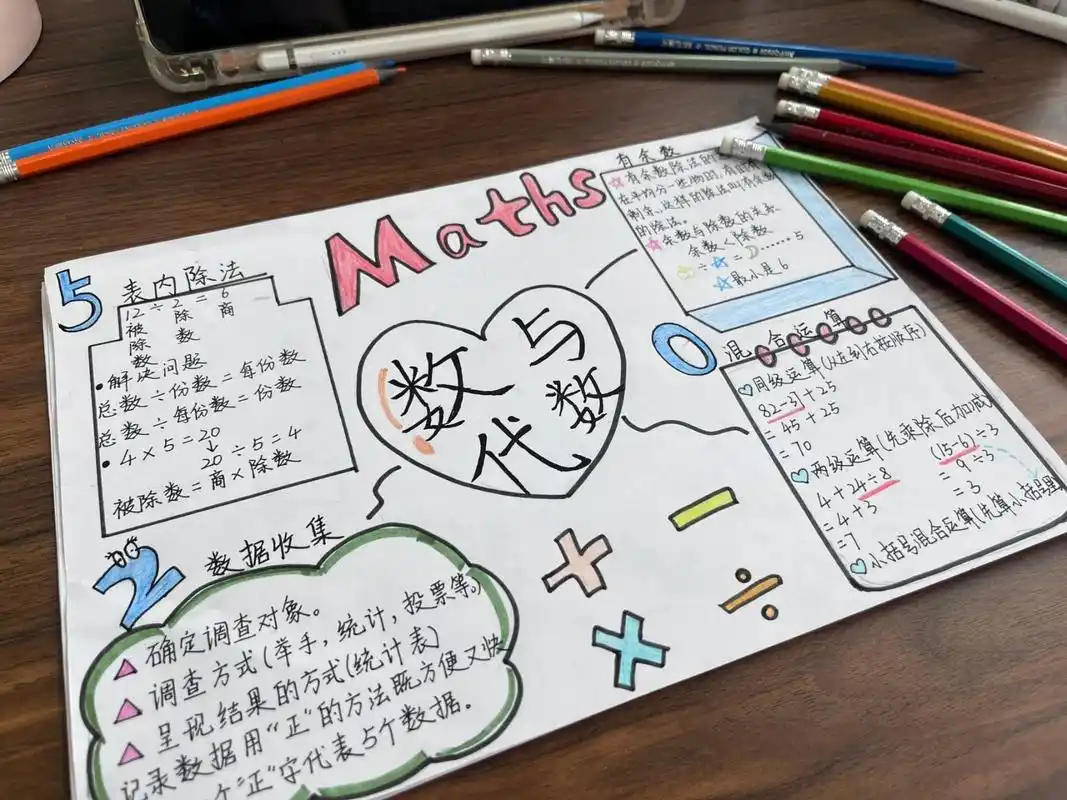 Maths
数与代数
5
表内除法
12÷2=6
被 除 商
除 数
数
•解决问题
总数÷份数=每份数
总数÷每份数=份数
•4×5=20
↓
20÷5=4
被除数=商×除数
有余数
☆有余数除法的
在平均分一些物时,有时
剩余,这样的除法叫有余数
的除法。
☆余数与除数的关系
余数<除数
÷☆= ……5
☆最小是6
0
混合运算
♡同级运算(从左到右按顺序)
82-37+25
=45+25
=70
♡两级运算(先乘除后加减)
4+24÷8
=4+3
=7
(15-6)÷3
=9÷3
=3
♡小括号混合运算(先算小括号里
2
数据收集
▲确定调查对象。
▲调查方式(举手,统计,投票等。)
▲呈现结果的方式(统计表)
记录数据用“正”的方法既方便又快
个“正”字代表5个数据.
+
×
−
÷